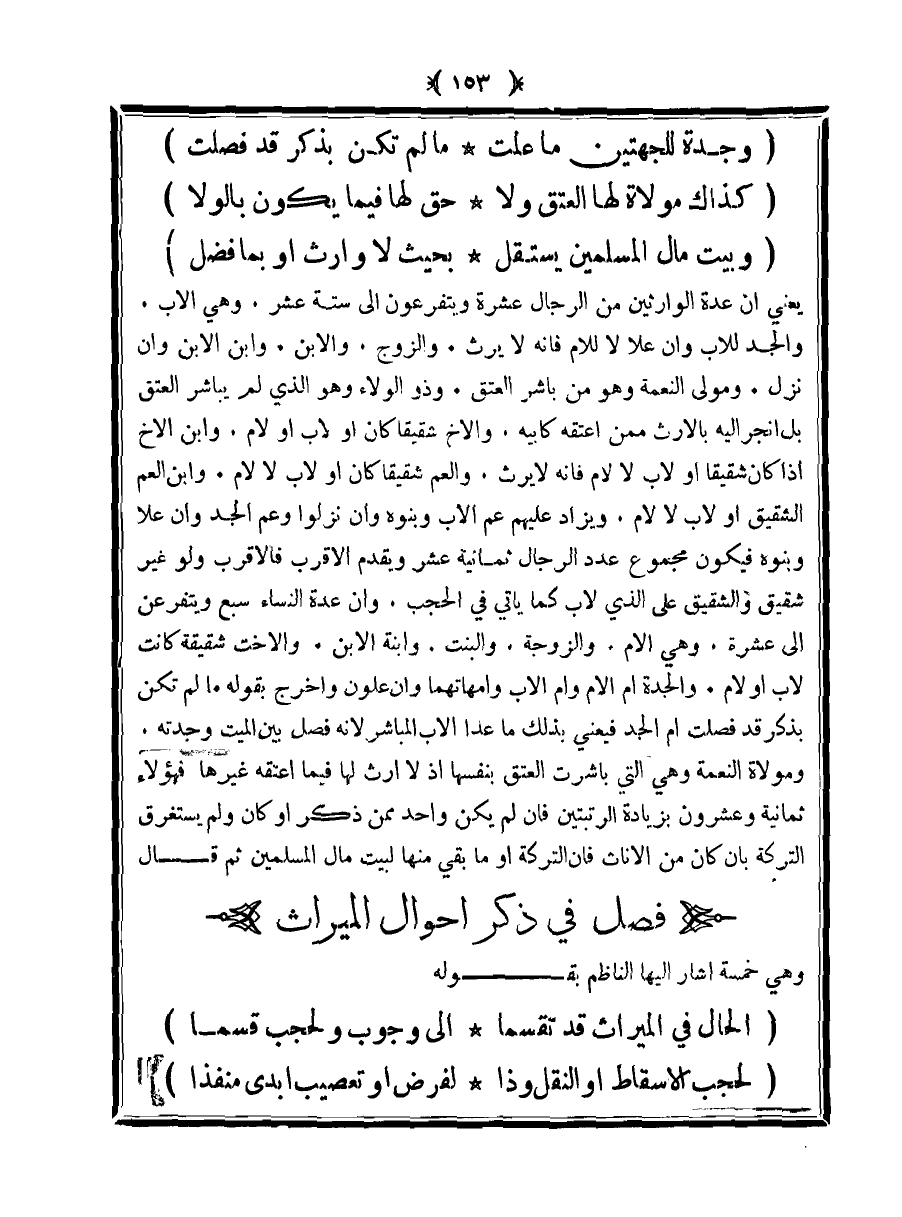 ﴿ ١٥٣ ﴾
( وجدة للجهتين ما علت * ما لم تكن بذكر قد فصلت )
( كذاك مولاة لها العتق ولا * حق لها فيما يكون بالولا )
( وبيت مال المسلمين يستقل * بحيث لا وارث او بما فضل )
يعني ان عدة الوارثين من الرجال عشرة ويتفرعون الى ستة عشر . وهي الاب .
والجد للاب وان علا لا للام فانه لا يرث . والزوج . والابن . وابن الابن وان
نزل . ومولى النعمة وهو من باشر العتق . وذو الولاء وهو الذي لم يباشر العتق
بل انجر اليه بالارث ممن اعتقه كابيه . والاخ شقيقا كان او لاب او لام . وابن الاخ
اذا كان شقيقا او لاب لا لام فانه لا يرث . والعم شقيقا كان او لاب لا لام . وابن العم
الشقيق او لاب لا لام . ويزاد عليهم عم الاب وبنوه وان نزلوا وعم الجد وان علا
وبنوه فيكون مجموع عدد الرجال ثمانية عشر ويقدم الاقرب فالاقرب ولو غير
شقيق والشقيق على الذي لاب كما ياتي في الحجب . وان عدة النساء سبع ويتفرعن
الى عشرة . وهي الام . والزوجة . والبنت . وابنة الابن . والاخت شقيقة كانت
لاب او لام . والجدة ام الام وام الاب وامهاتهما وان علون واخرج بقوله ما لم تكن
بذكر قد فصلت ام الجد فيعني بذلك ما عدا الاب المباشر لانه فصل بين الميت وجدته .
ومولاة النعمة وهي التي باشرت العتق بنفسها اذ لا ارث لها فيما اعتقه غيرها فهؤلاء
ثمانية وعشرون بزيادة الرتبتين فان لم يكن واحد ممن ذكر او كان ولم يستغرق
التركة بان كان من الاناث فان التركة او ما بقي منها لبيت مال المسلمين ثم قال
فصل في ذكر احوال الميراث
وهي خمسة اشار اليها الناظم بقوله
( الحال في الميراث قد تقسما * الى وجوب ولحجب قسما )
( لحجب الاسقاط او النقل وذا * لفرض او تعصيب ابدى منفذا )